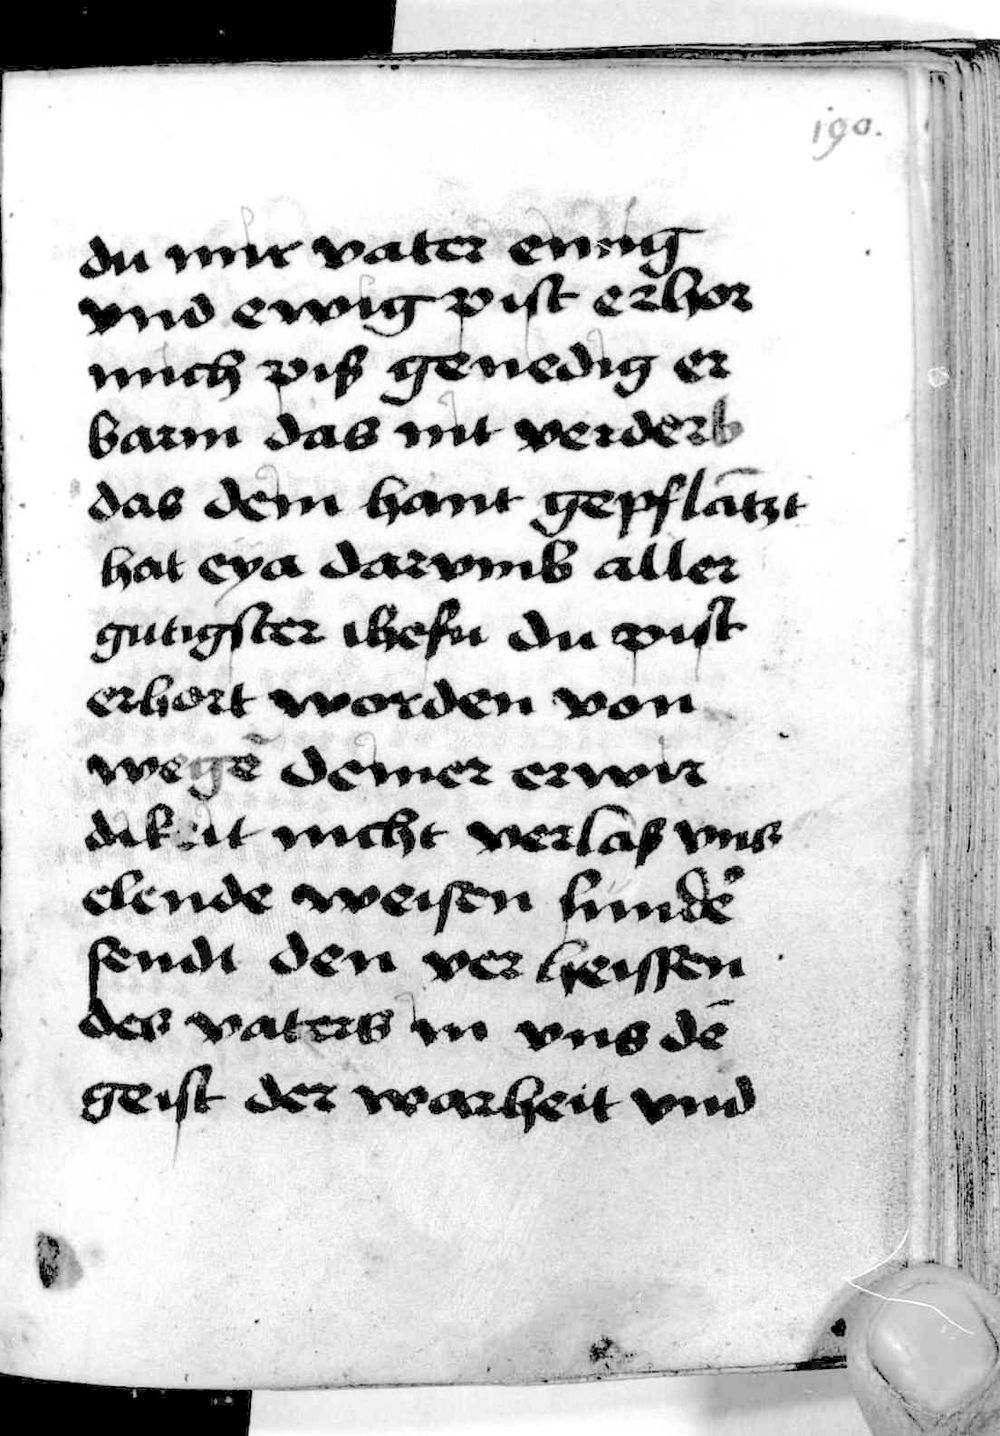 190.
du mir vater einig
vnd ewig pist erhor
mich pis genedig er
barm das nit verderb
das dein hant gepflātzt
hat eya darvmb aller
gutigster ihesu du pist
erhort worden von
wegē deiner erwir
dikeit nicht verlas vns
elende weisen sunde
sendt den ver heissen
des vaters in vns dē
geist der warheit vnd